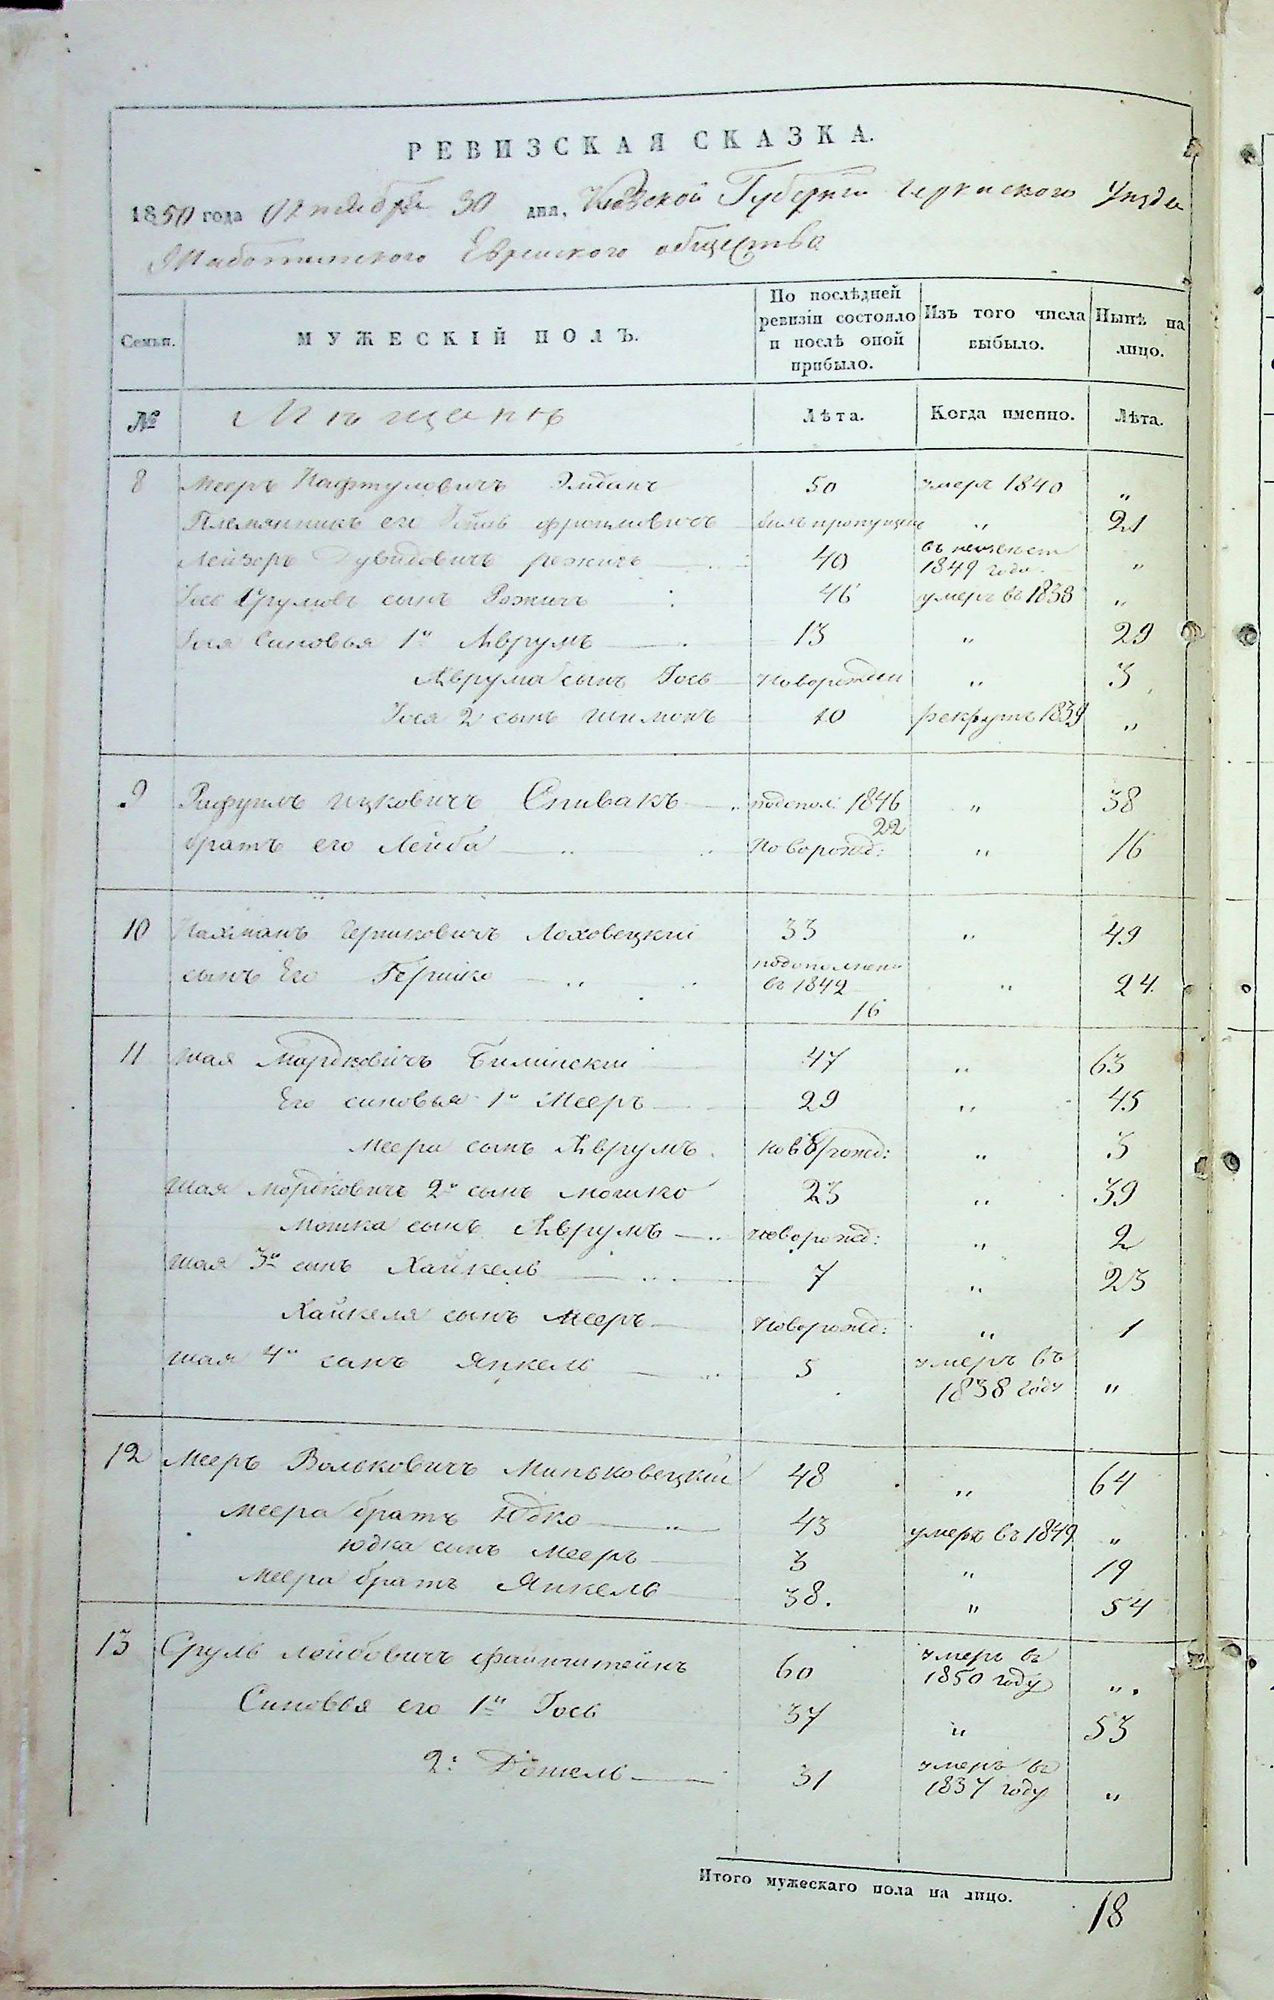 РЕВИЗСКАЯ СКАЗКА.
1850 года Октября 30 дня, Киевской Губернии Черкаского Уезда
Еврейского общества
Семьи. МУЖЕСКІЙ ПОЛЪ. По послѣдней ревизіи состояло и послѣ оной прибыло. Изъ того числа выбыло. Нынѣ на лицо.
№ Мещане Лѣта. Когда именно. Лѣта.
8 Мееръ Нафтуловичъ 50 умеръ 1840 „
Племянникъ его Фроимовичъ былъ пропущенъ „ 21
Лейзоръ Дувидовичъ 40 въ 1849 года „
Іось Сруловъ сынъ 46 умеръ въ 1838 „
Іося Синовья 1й Аврумъ 13 „ 29
Аврума сынъ Іось Новорожден „ 3
Іося 2 сынъ Шимонъ 10 рекрутъ 1839 „
9 Ицковичъ Спивакъ 1846 22 „ 38
братъ его Лейба Новорожд: „ 16
10 Нахманъ Гершковичъ Ляховецкій 33 „ 49
сынъ Его Гершко въ 1842 16 „ 24
11 Шая Мордковичъ Билинскій 47 „ 63
Его синовья 1й Мееръ 29 „ 45
Меера сынъ Аврумъ новорожд: „ 3
Шая Мордковичъ 2й сынъ Мошко 23 „ 39
Мошка сынъ Аврумъ новорожд: „ 2
Шая 3й сынъ Хайкель 7 „ 23
Хайкеля сынъ Мееръ Новорожд: „ 1
Шая 4й сынъ Янкель 5 умеръ въ 1838 году „
12 Мееръ Вольковичъ Миньковецкій 48 „ 64
Меера братъ Юдко 43 умеръ въ 1849 „
Юдка сынъ Мееръ 3 „ 19
Меера братъ Янкель 38. „ 54
13 Сруль Лейбовичъ Файнштейнъ 60 умеръ въ 1850 году „
Синовья его 1й Іось 37 „ 53
2: 31 умеръ въ 1837 году „
Итого мужескаго пола на лицо. 18